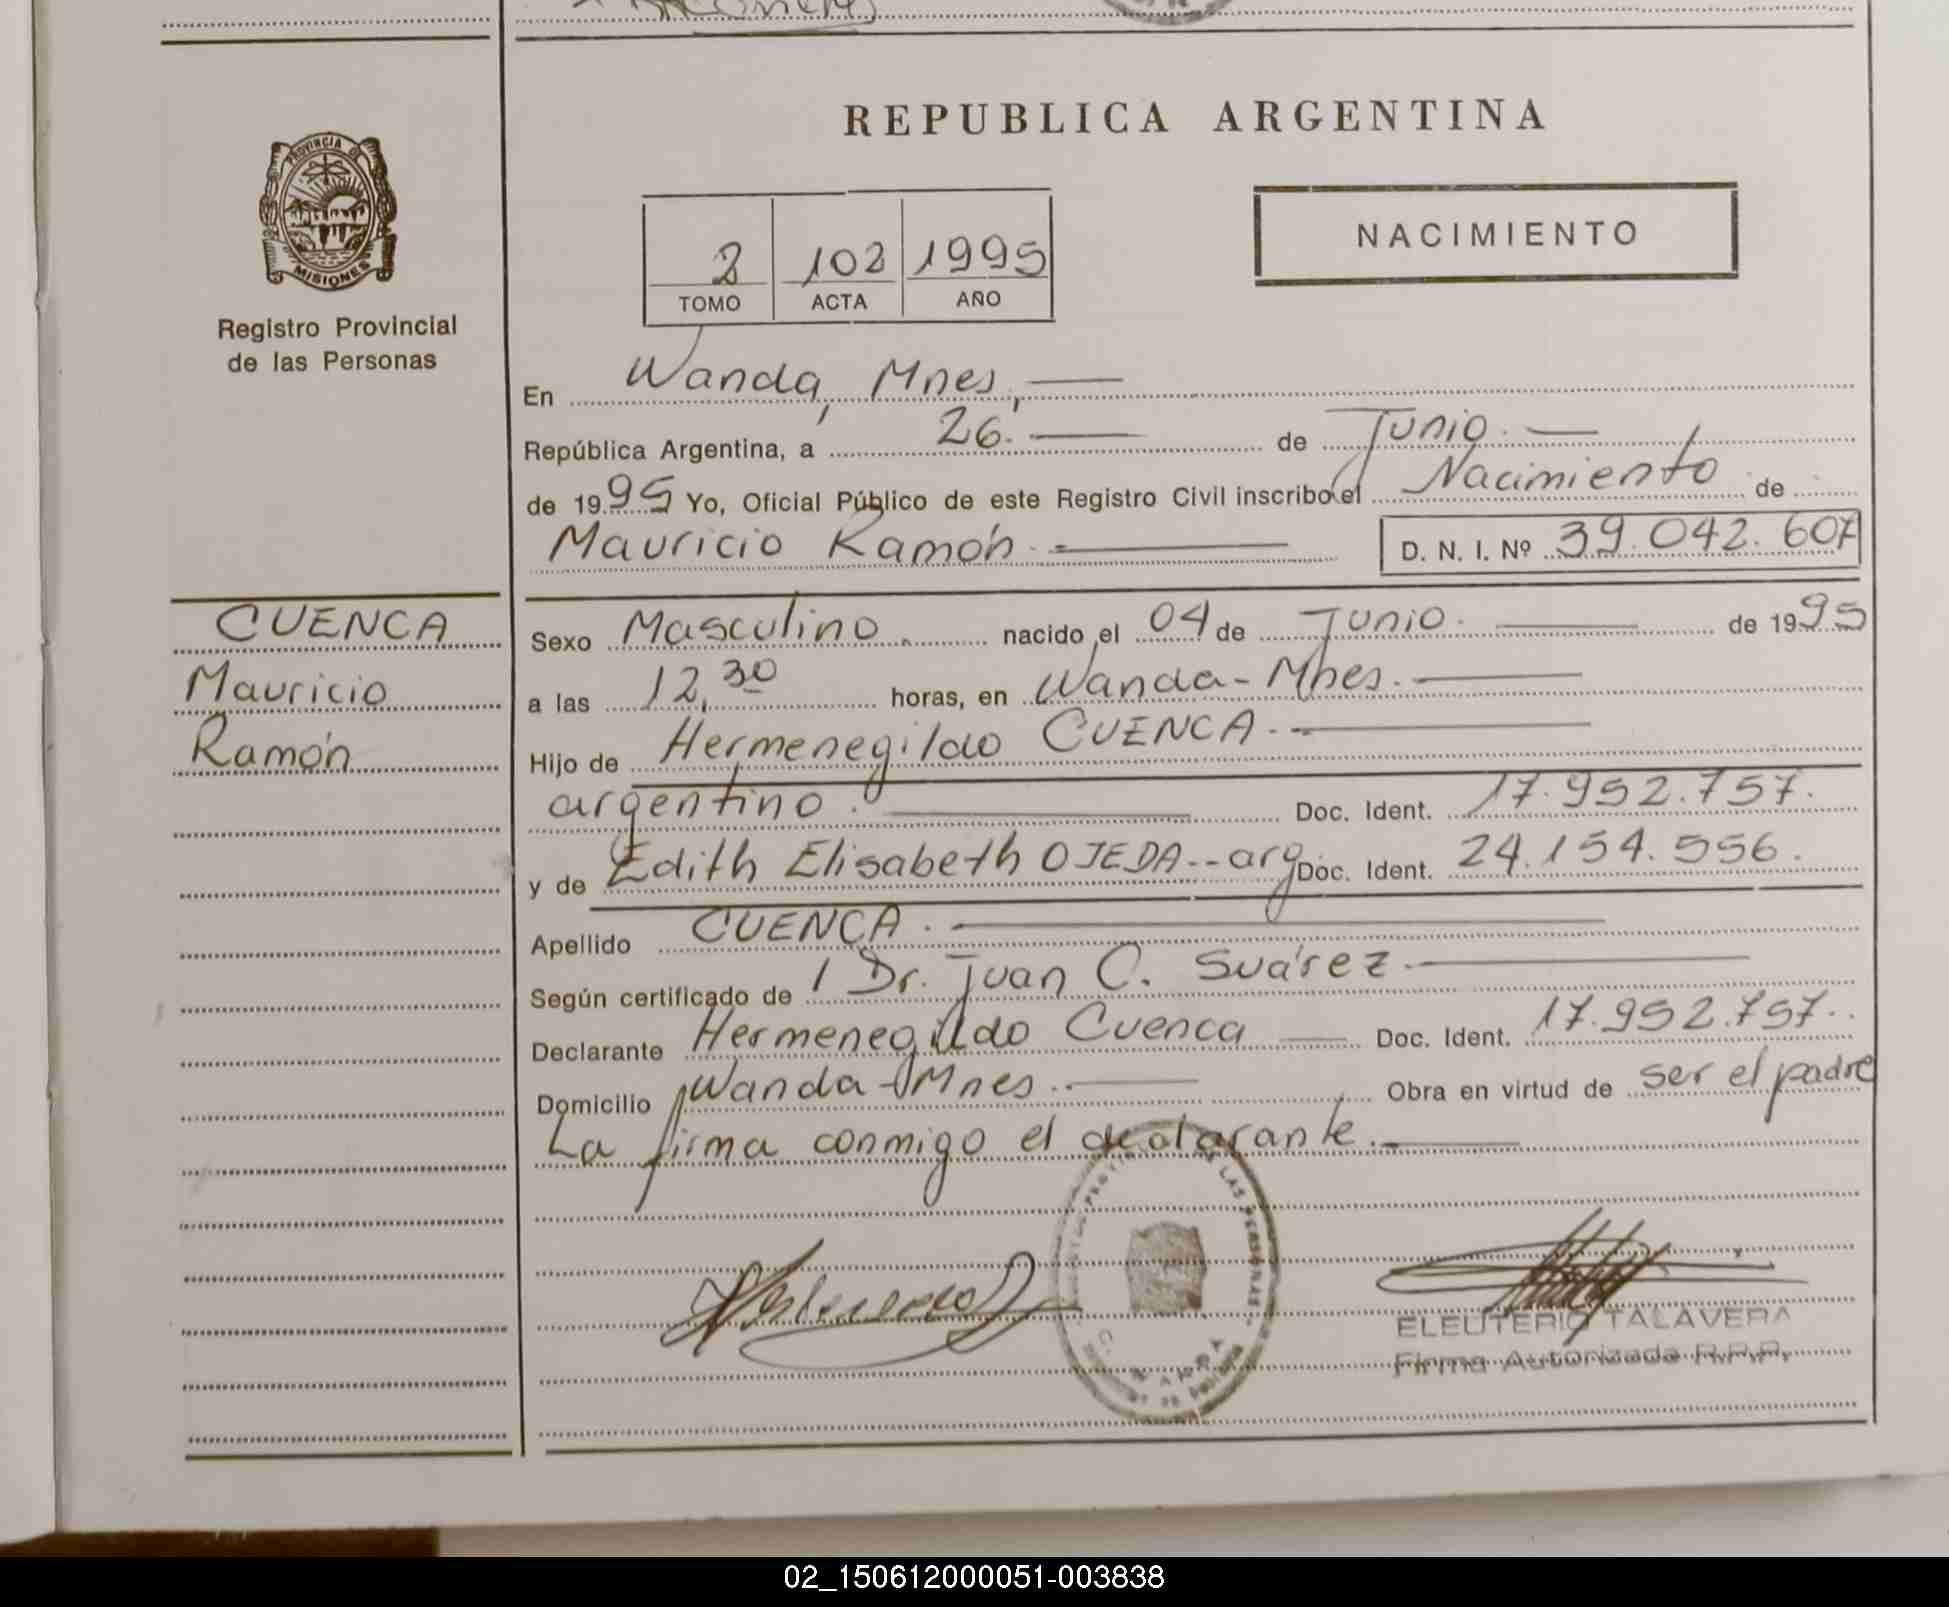 REPUBLICA ARGENTINA
PROVINCIA DE
MISIONES
Registro Provincial
de las Personas
2 102 1995
TOMO ACTA AÑO
NACIMIENTO
En Wanda, Mnes,
República Argentina, a 26. de Junio.
de 1995 Yo, Oficial Público de este Registro Civil inscribo el Nacimiento de
Mauricio Ramón. D. N. I. Nº 39.042.607
CUENCA
Mauricio
Ramón
Sexo Masculino. nacido el 04 de Junio. de 1995
a las 12,30 horas, en Wanda - Mnes.
Hijo de Hermenegildo CUENCA.
argentino. Doc. Ident. 17.952.757.
y de Edith Elisabeth OJEDA -- arg Doc. Ident. 24.154.556.
Apellido CUENCA.
Según certificado de / Dr. Juan C. Suárez.
Declarante Hermenegildo Cuenca Doc. Ident. 17.952.757.
Domicilio Wanda - Mnes. Obra en virtud de ser el padre
La firma conmigo el declarante.
LAS PERSONAS
ELEUTERIO TALAVERA
Firma Autorizada R.P.P.
02_150612000051-003838